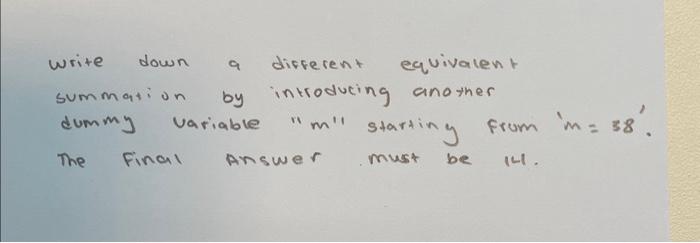 write down a different equivalent
summation by introducing another
dummy variable "m" starting from 'm = 38'.
The Final Answer must be 141.